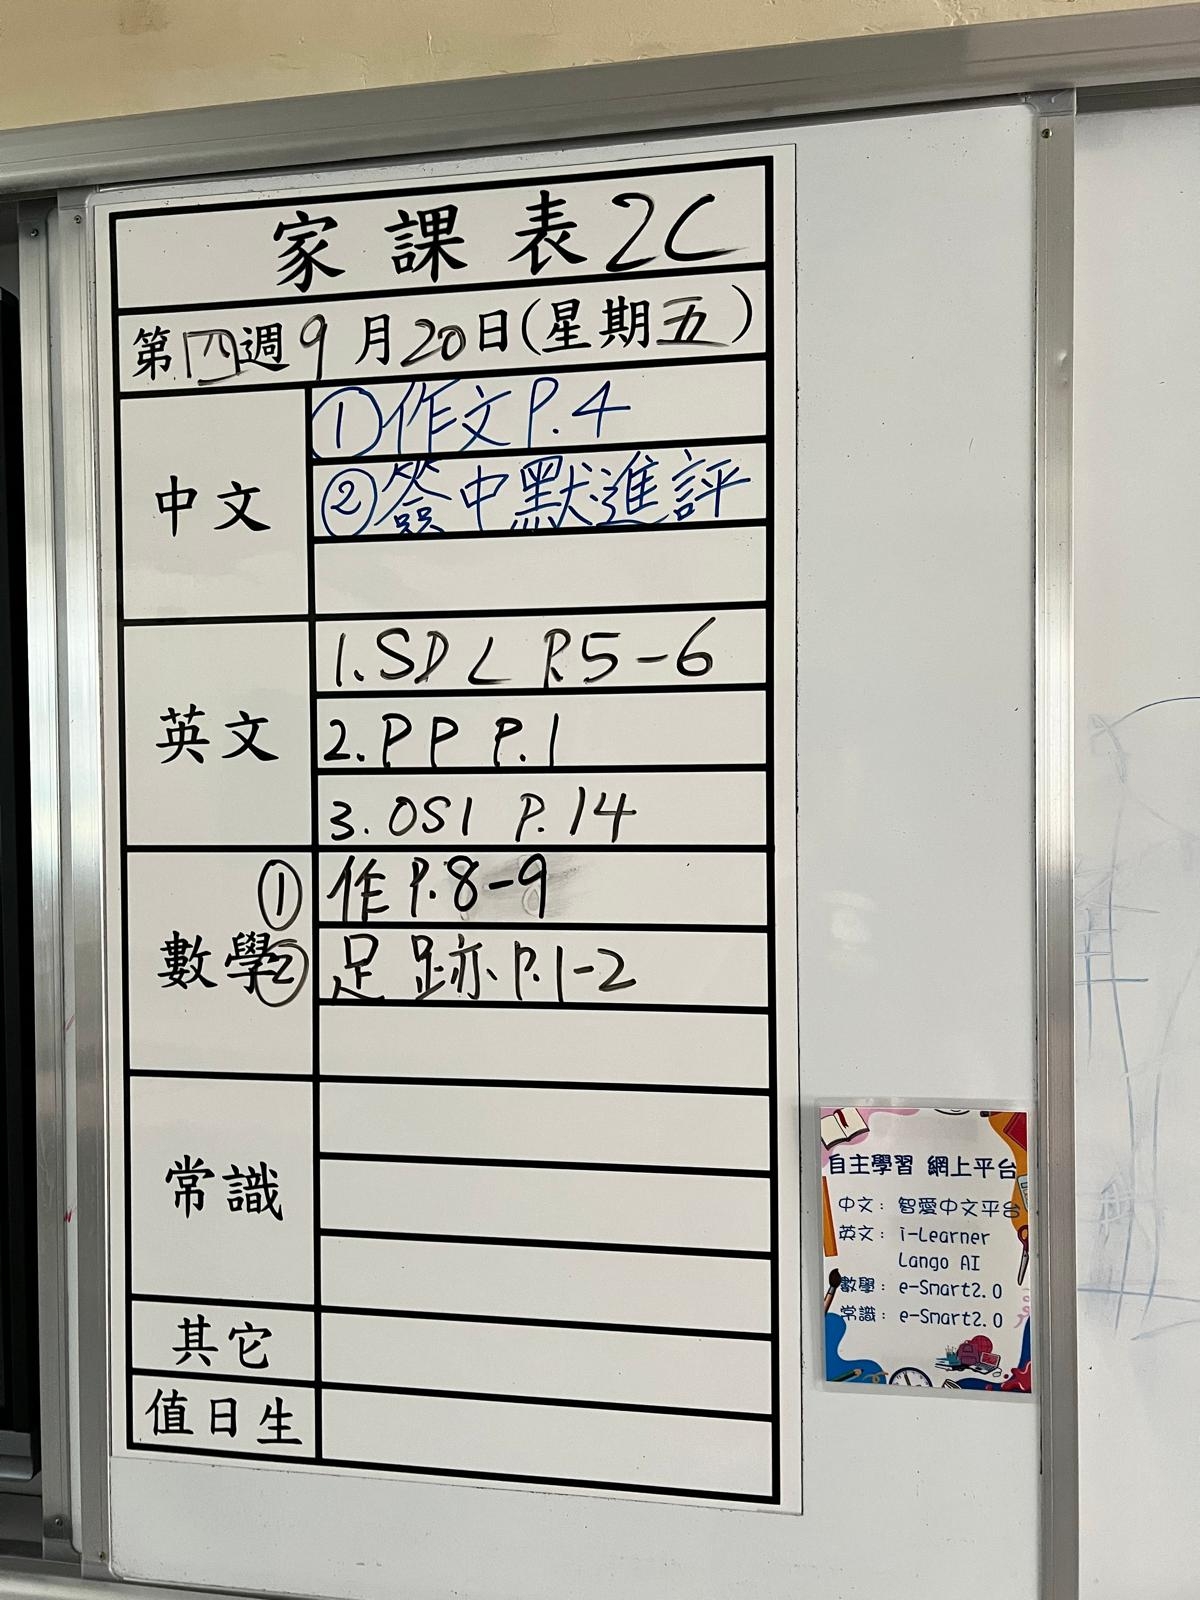 家課表2C
第四週9月20日(星期五)
中文
①作文P.4
②簽中默進評
英文
1.SDL P.5-6
2.PP P.1
3.OS1 P.14
數學
① 作P.8-9
② 足跡P.1-2
常識
其它
值日生
自主學習 網上平台
中文：智愛中文平台
英文：i-Learner
Lango AI
數學：e-Smart2.0
常識：e-Smart2.0